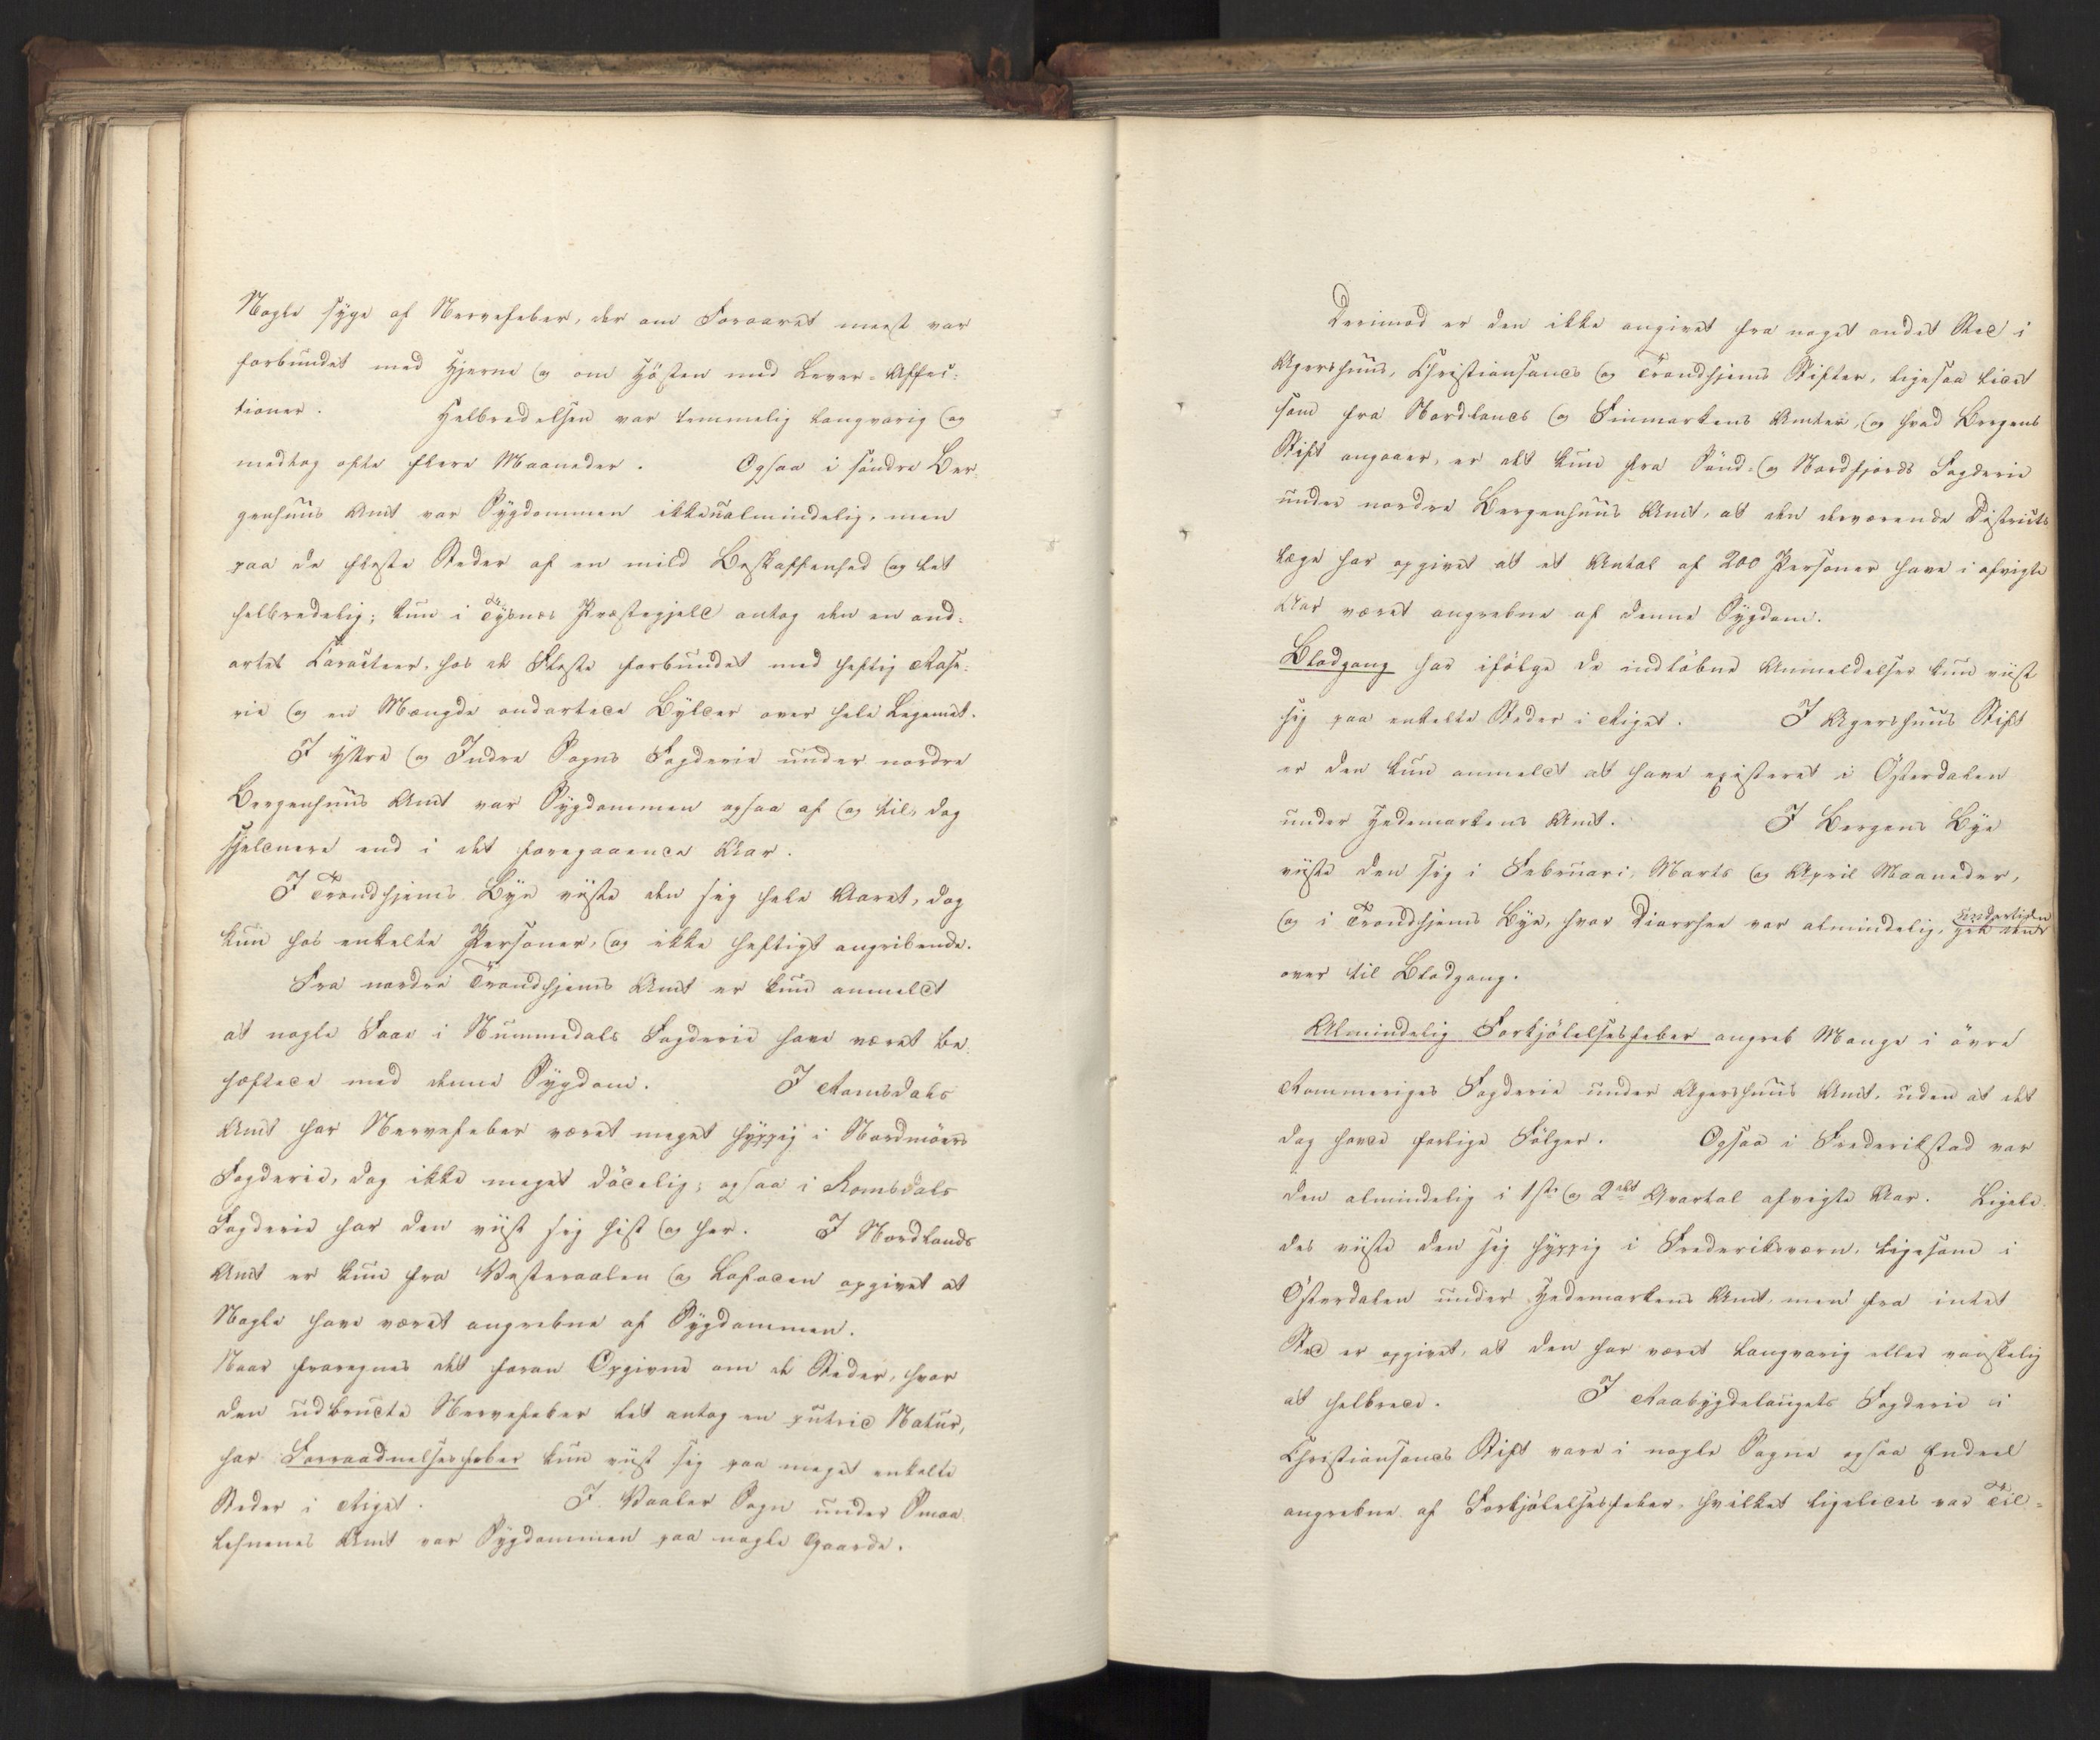 Nogle syge af Nervefeber, der om Foraaret meest var
forbundet med Hjerne og om Hösten med Lever-Affec-
tioner. Helbredelsen var temmelig langvarig og
medtog ofte flere Maaneder. Ogsaa i söndre Ber-
genhuus Amt var Sygdommen ikke ualmindelig, men
paa de fleste Steder af en mild Beskaffenhed og let
helbredelig; kun i Tysnes Præstegjeld antog den en ond-
artet Caracteer, hos de Fleste forbundet med heftig Rase-
rie og en Mængde ondartede Bylder over hele Legemet.
I Yttre og Indre Sogns Fogderie under nordre
Bergenhuus Amt var Sygdommen ogsaa af og til, dog
sjeldnere end i det foregaaende Aar.
I Trondhjems Bye viiste den sig hele Aaret, dog
kun hos enkelte Personer, og ikke heftigt angribende.
Fra nordre Trondhjems Amt er kun anmeldt
at nogle Faae i Nummedals Fogderie have været be-
hæftede med denne Sygdom. I Romsdals
Amt har Nervefeber været meget hyppig i Nordmöers
Fogderie, dog ikke meget dödelig; ogsaa i Romsdals
Fogderie har den viist sig hist og her. I Nordlands
Amt er kun fra Vesteraalen og Lofoden opgivet at
Nogle have været angrebne af Sygdommen.
Naar fraregnes det foran Opgivne om de Steder, hvor
den udbrudte Nervefeber let antog en putrid Natur,
har Forraadnelsesfeber kun viist sig paa meget enkelte
Steder i Riget. I Vaaler Sogn under Smaa-
lehnenes Amt var Sygdommen paa nogle Gaarde.
Derimod er den ikke angivet fra noget andet Sted i
Agershuus, Christiansands og Trondhjems Stifter, ligesaa lidet
som fra Nordlands og Finmarkens Amter, og hvad Bergens
Stift angaaer, er det kun fra Sönd- og Nordfjords Fogderie
under nordre Bergenhuus Amt, at den derværende Districts
læge har opgivet at et Antal af 200 Personer have i afvigte
Aar været angrebne af denne Sygdom.
Blodgang har ifölge de indlöbne Anmeldelser kun viist
sig paa enkelte Steder i Riget. I Agershuus Stift
er den kun anmeldt at have existeret i Österdalen
under Hedemarkens Amt. I Bergens Bye
viiste den sig i Februari, Marts og April Maaneder,
og i Trondhjems Bye, hvor Diarrhee var almindelig, gik den
over til Blodgang.
Almindelig Forkjölelsesfeber angreb Mange i övre
Rommeriges Fogderie under Agershuus Amt, uden at det
dog havde farlige Fölger. Ogsaa i Frederikstad var
den almindelig i 1ste og 2det Qvartal afvigte Aar. Ligele-
des viiste den sig hyppig i Frederiksværn, ligesom i
Österdalen under Hedemarkens Amt, men fra intet
Sted er opgivet, at den har været langvarig eller vanskelig
at helbrede. I Raabygdelaugets Fogderie i
Christiansands Stift vare i nogle Sogne ogsaa Endeel
angrebne af Forkjölelsesfeber, hvilket ligeledes var Til-